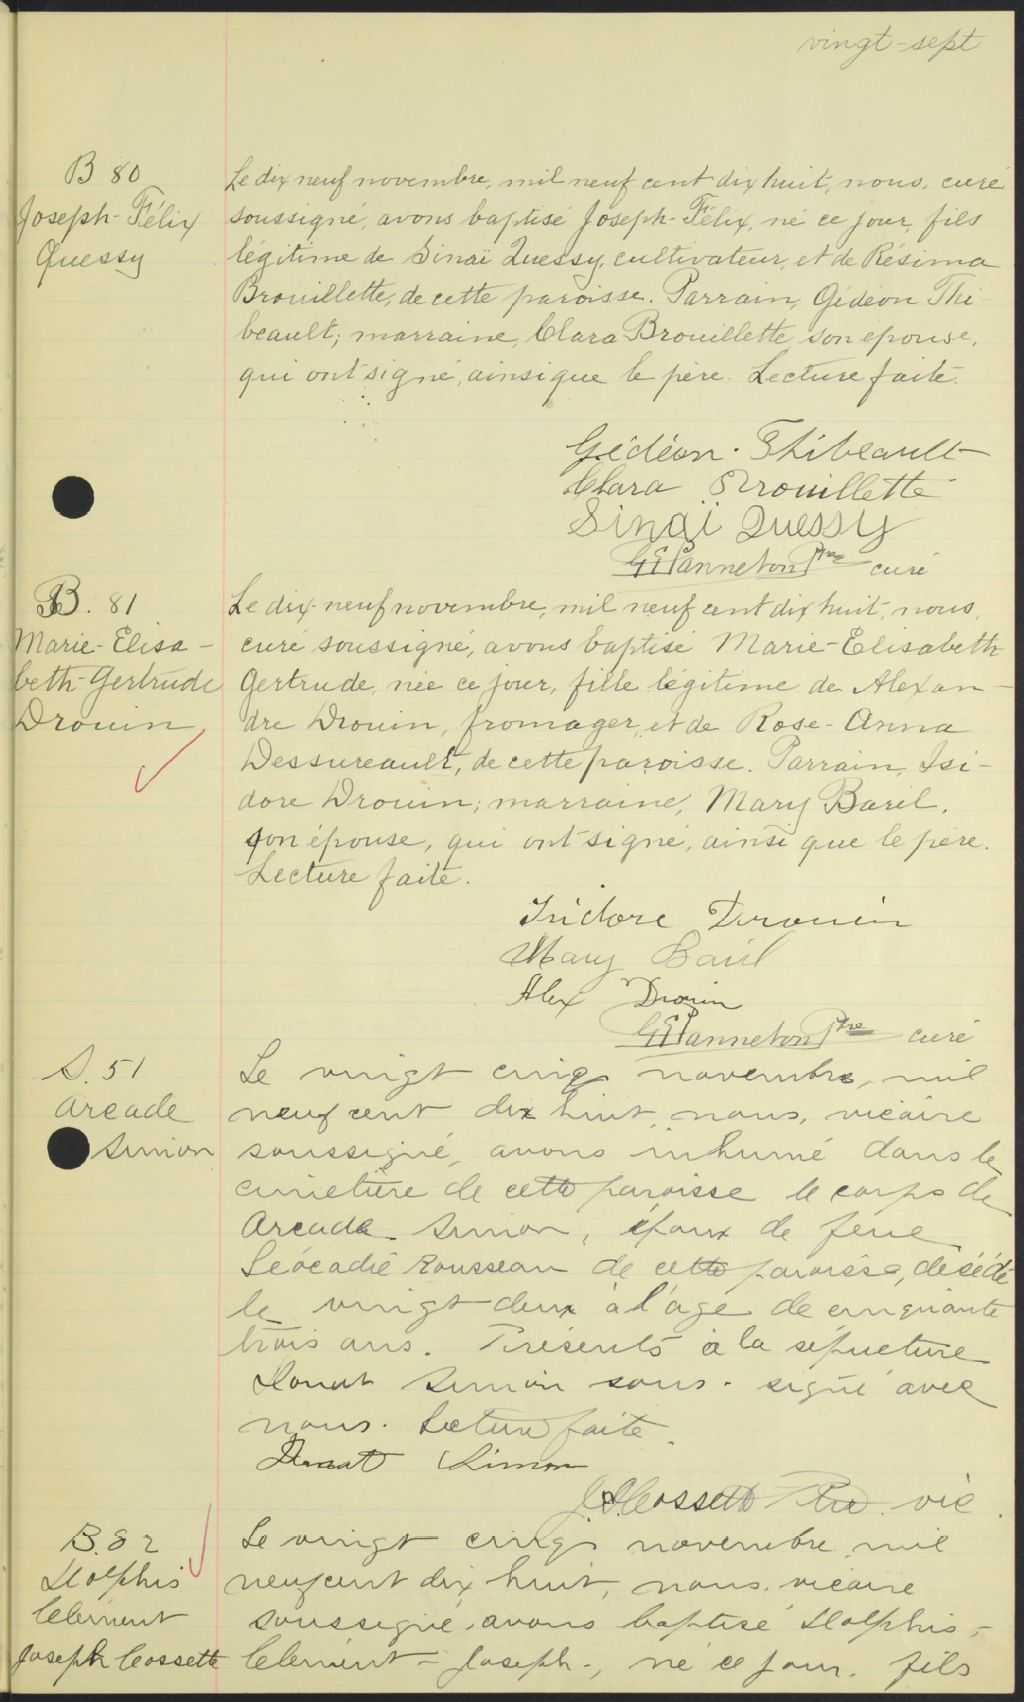 vingt-sept
B 80
Joseph-Félix
Quessy
Le dix neuf novembre, mil neuf cent dix huit, nous, curé
soussigné, avons baptisé Joseph-Félix, né ce jour, fils
légitime de Sinaï Quessy, cultivateur, et de Résima
Brouillette, de cette paroisse. Parrain, Gédéon Thi-
beault; marraine, Clara Brouillette, son épouse,
qui ont signé, ainsi que le père. Lecture faite.
Gédéon Thibeault
Clara Brouillette
Sinaï Quessy
G E Panneton Ptre curé
B. 81
Marie-Elisa-
beth-Gertrude
Drouin
Le dix-neuf novembre, mil neuf cent dix huit, nous,
curé soussigné, avons baptisé Marie-Elisabeth
Gertrude, née ce jour, fille légitime de Alexan-
dre Drouin, fromager, et de Rose-Anna
Dessureault, de cette paroisse. Parrain, Isi-
dore Drouin; marraine, Mary Baril,
son épouse, qui ont signé, ainsi que le père.
Lecture faite.
Isidore Drouin
Mary Baril
Alex Drouin
G E Panneton Ptre curé
S. 51
Arcade
Simon
Le vingt cinq novembre, mil
neuf cent dix huit, nous, vicaire
soussigné, avons inhumé dans le
cimetière de cette paroisse le corps de
Arcade Simon, époux de feue
Léocadie Rousseau de cette paroisse, décédé
le vingt deux à l'age de cinquante
trois ans. Présents à la sépulture
Donat Simon sous-signé avec
nous. Lecture faite.
Donat Simon
Cossette Ptre vic.
B. 82
Dolphis
Clément
Joseph Cossette
Le vingt cinq novembre mil
neuf cent dix huit, nous, vicaire
soussigné, avons baptisé Dolphis-
Clément-Joseph, né ce jour, fils